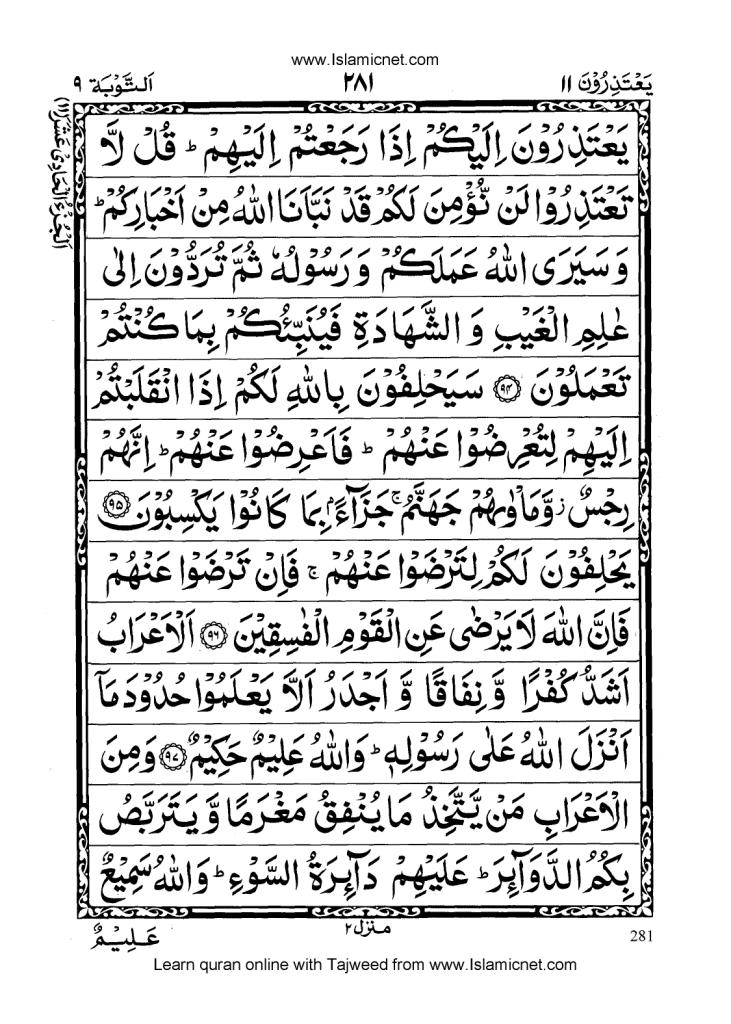 www.Islamicnet.com
يَعْتَذِرُوْنَ ١١ ٢٨١ اَلتَّوْبَة ٩
اَلْجُزْءُ الْحَادِیْ عَشَرَ (١١)
يَعْتَذِرُوْنَ اِلَيْكُمْ اِذَا رَجَعْتُمْ اِلَيْهِمْ ؕ قُلْ لَّا
تَعْتَذِرُوْا لَنْ نُّؤْمِنَ لَكُمْ قَدْ نَبَّاَنَا اللّٰهُ مِنْ اَخْبَارِكُمْ ؕ
وَ سَيَرَى اللّٰهُ عَمَلَكُمْ وَ رَسُوْلُهٗ ثُمَّ تُرَدُّوْنَ اِلٰى
عٰلِمِ الْغَيْبِ وَ الشَّهَادَةِ فَيُنَبِّئُكُمْ بِمَا كُنْتُمْ
تَعْمَلُوْنَ ۝٩٤ سَيَحْلِفُوْنَ بِاللّٰهِ لَكُمْ اِذَا انْقَلَبْتُمْ
اِلَيْهِمْ لِتُعْرِضُوْا عَنْهُمْ ؕ فَاَعْرِضُوْا عَنْهُمْ ؕ اِنَّهُمْ
رِجْسٌ ؗ وَّمَاْوٰىهُمْ جَهَنَّمُ ۚ جَزَآءًۢ بِمَا كَانُوْا يَكْسِبُوْنَ ۝٩٥
يَحْلِفُوْنَ لَكُمْ لِتَرْضَوْا عَنْهُمْ ۚ فَاِنْ تَرْضَوْا عَنْهُمْ
فَاِنَّ اللّٰهَ لَا يَرْضٰى عَنِ الْقَوْمِ الْفٰسِقِيْنَ ۝٩٦ اَلْاَعْرَابُ
اَشَدُّ كُفْرًا وَّ نِفَاقًا وَّ اَجْدَرُ اَلَّا يَعْلَمُوْا حُدُوْدَ مَاۤ
اَنْزَلَ اللّٰهُ عَلٰى رَسُوْلِهٖ ؕ وَاللّٰهُ عَلِيْمٌ حَكِيْمٌ ۝٩٧ وَمِنَ
الْاَعْرَابِ مَنْ يَّتَّخِذُ مَا يُنْفِقُ مَغْرَمًا وَّ يَتَرَبَّصُ
بِكُمُ الدَّوَآئِرَ ؕ عَلَيْهِمْ دَآئِرَةُ السَّوْءِ ؕ وَاللّٰهُ سَمِيْعٌ
281 منزل ٢ عَلِيْمٌ
Learn quran online with Tajweed from www.Islamicnet.com